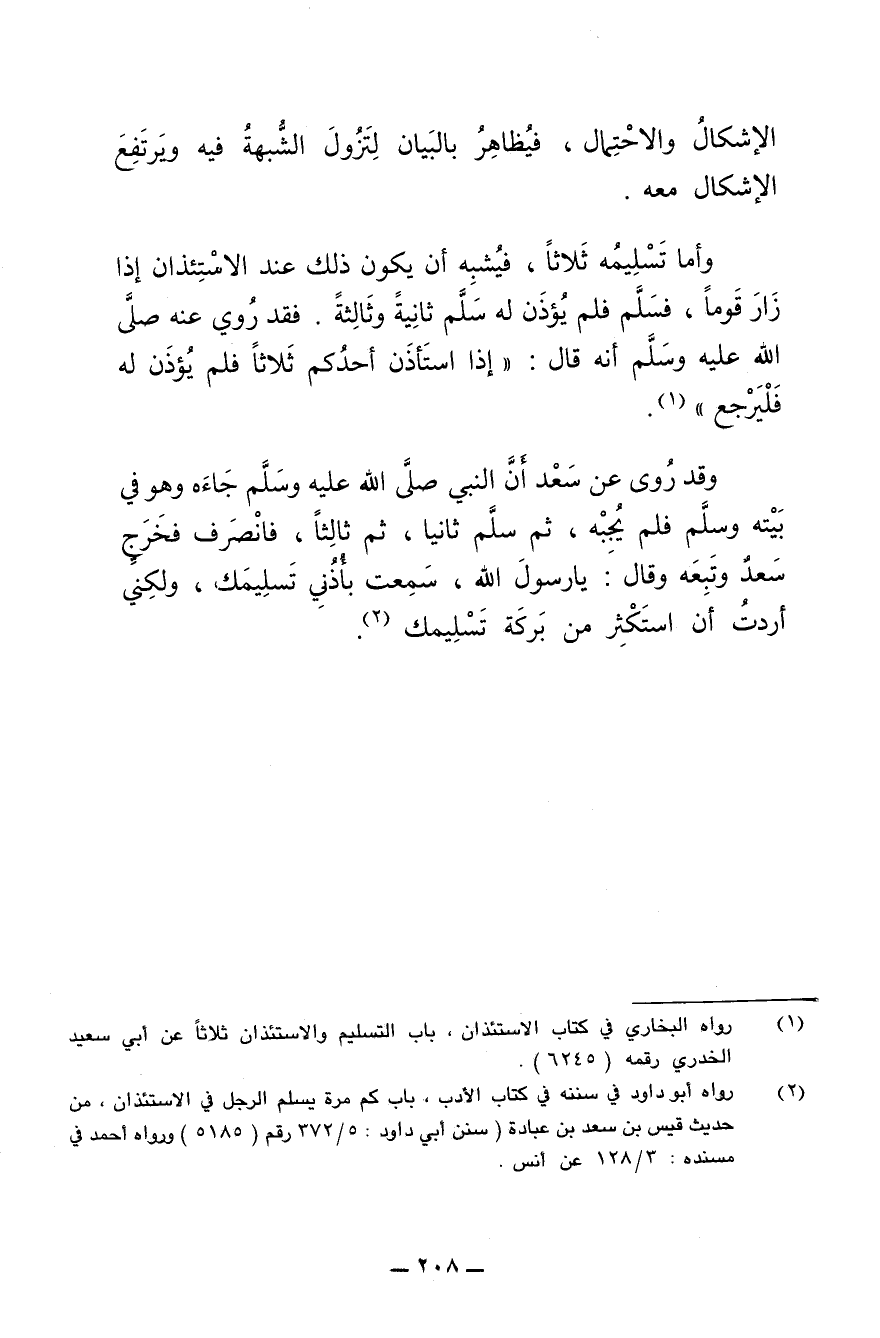 الإشكالُ والاحْتِمال ، فيُظاهِرُ بالبَيان لِتَزُولَ الشُّبهةُ فيه ويَرتَفِعَ
الإشكال معه .
وأما تَسْلِيمُه ثَلاثاً ، فيُشبِه أن يكون ذلك عند الاسْتِئذان إذا
زَارَ قَوماً ، فسَلَّم فلم يُؤذَن له سَلَّم ثانِيةً وثَالِثةً . فقد رُوي عنه صلَّى
الله عليه وسَلَّم أنه قال : « إذا استَأذَن أحدُكم ثَلاثاً فلم يُؤذَن له
فَلْيَرْجع » (١).
وقد رُوى عن سَعْد أَنَّ النبي صلَّى الله عليه وسَلَّم جَاءَه وهو في
بَيْته وسلَّم فلم يُجِبْه ، ثم سلَّم ثانيا ، ثم ثالِثاً ، فانْصَرف فخَرَج
سَعدٌ وتَبِعَه وقال : يارسولَ الله ، سَمِعت بأُذُنِي تَسلِيمَك ، ولكِنِّي
أردتُ أن استَكْثِر من بَركَة تَسْلِيمك (٢).
(١) رواه البخاري في كتاب الاستئذان ، باب التسليم والاستئذان ثلاثاً عن أبي سعيد
الخدري رقمه ( ٦٢٤٥ ) .
(٢) رواه أبو داود في سننه في كتاب الأدب ، باب كم مرة يسلم الرجل في الاستئذان ، من
حديث قيس بن سعد بن عبادة ( سنن أبي داود : ٣٧٢/٥ رقم ( ٥١٨٥ ) ورواه أحمد في
مسنده : ١٢٨/٣ عن أنس .
— ٢٠٨ —